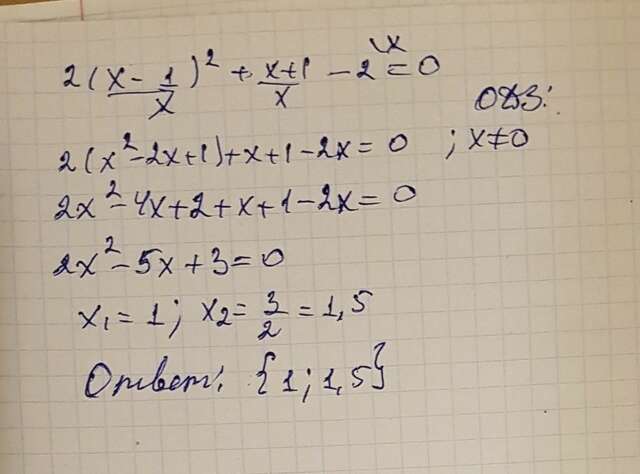 2(x-1/x)² + x+1/x - 2 = 0 \x
ОДЗ:
2(x²-2x+1)+x+1-2x=0 ; x≠0
2x²-4x+2+x+1-2x=0
2x²-5x+3=0
x₁=1; x₂=3/2=1,5
Ответ: {1;1,5}